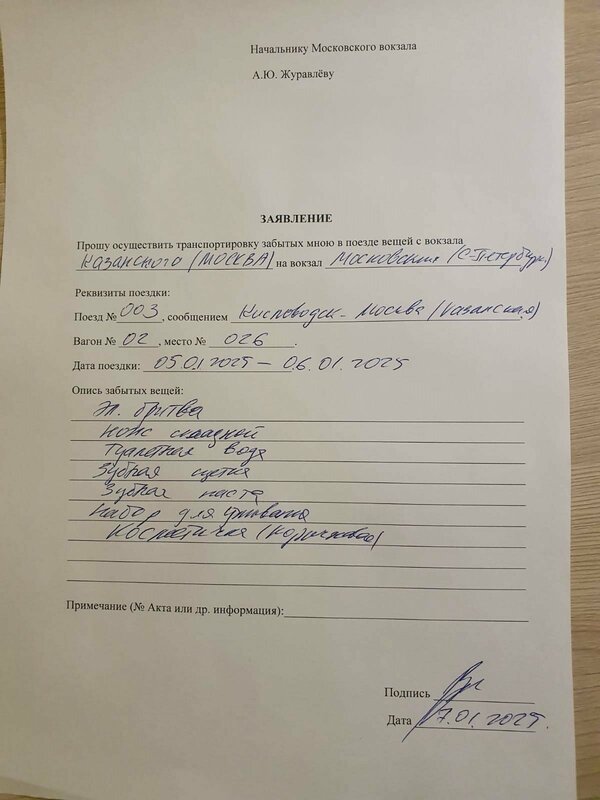 Начальнику Московского вокзала
А.Ю. Журавлёву
ЗАЯВЛЕНИЕ
Прошу осуществить транспортировку забытых мною в поезде вещей с вокзала
Казанского (МОСКВА) на вокзал Московский (С-Петербург)
Реквизиты поездки:
Поезд № 003, сообщением Кисловодск - Москва (Казанская)
Вагон № 02, место № 026.
Дата поездки: 05.01 2025 – 06.01.2025
Опись забытых вещей:
Эл. бритва
Нож складной
Туалетная вода
Зубная щетка
Зубная паста
Набор для
Косметичка (коричневая)
Примечание (№ Акта или др. информация):
Подпись
Дата 7.01.2025.